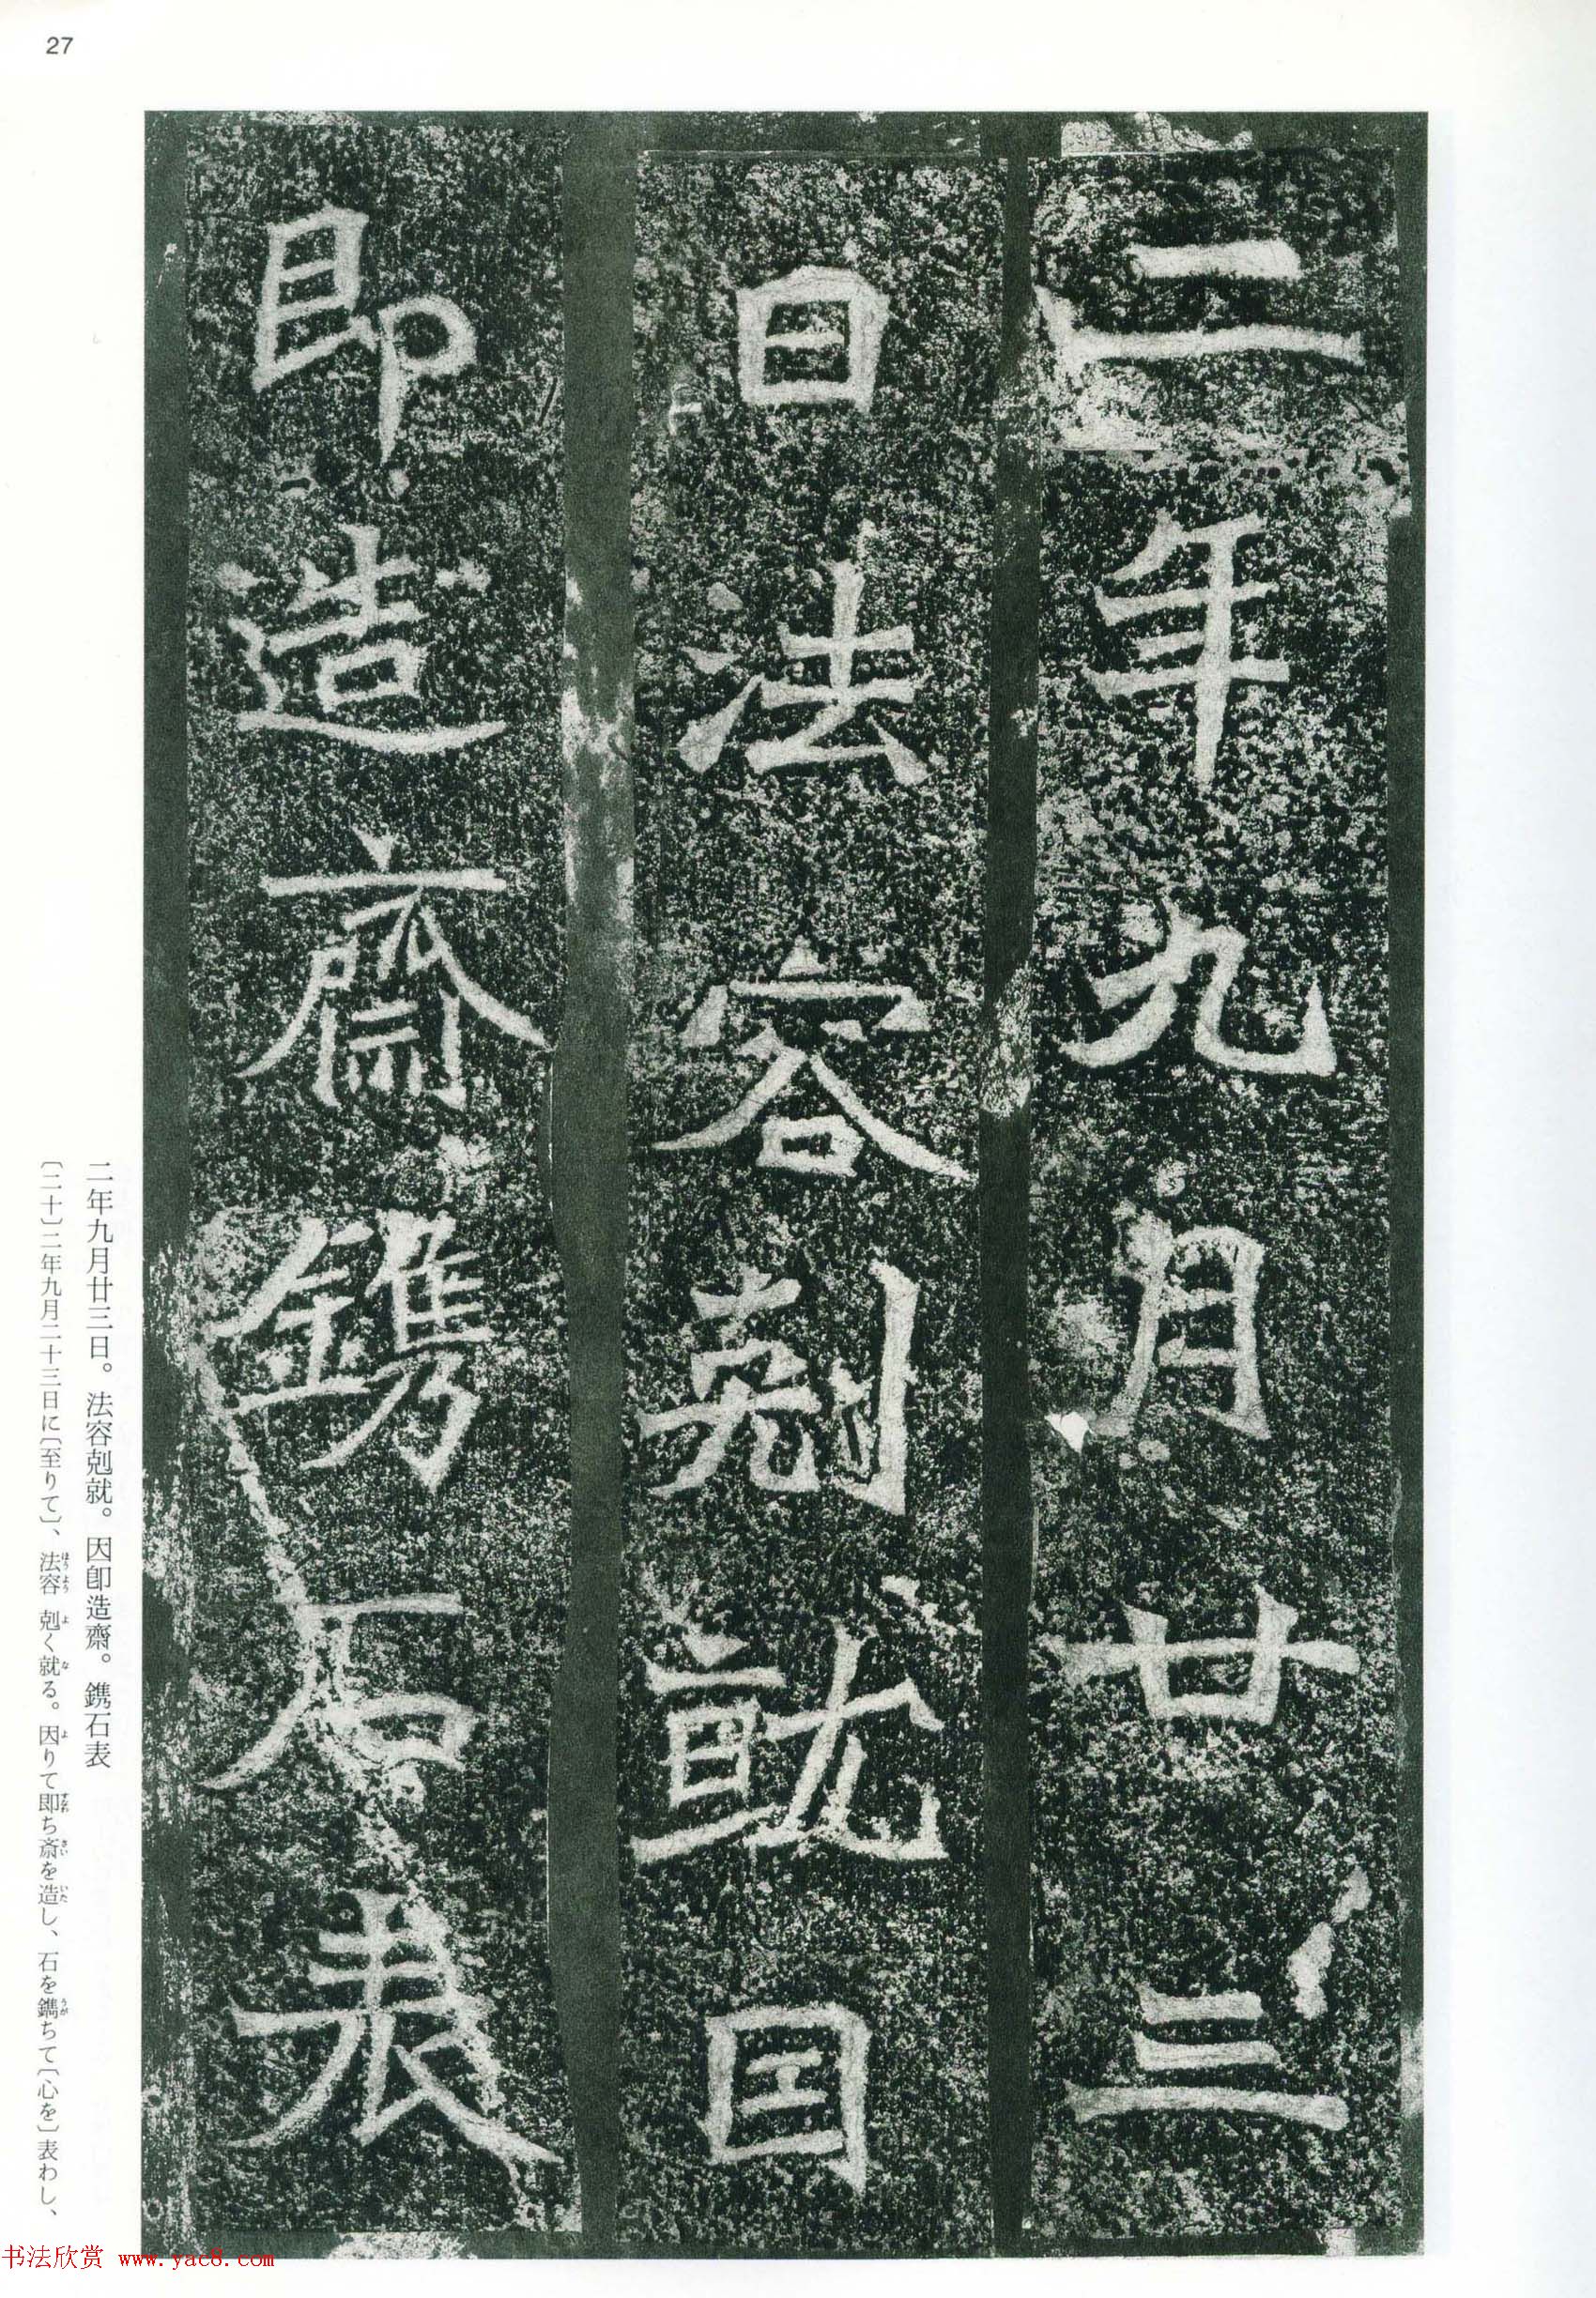 27
二年九月廿三
日法容剋就因
即造齋鐫石表
二年九月廿三日。法容剋就。因即造齋。鐫石表
〔二十〕二年九月二十三日に〔至りて〕、法容剋く就る。因りて即ち斎を造し、石を鐫ちて〔心を〕表わし、
书法欣赏 www.yac8.com